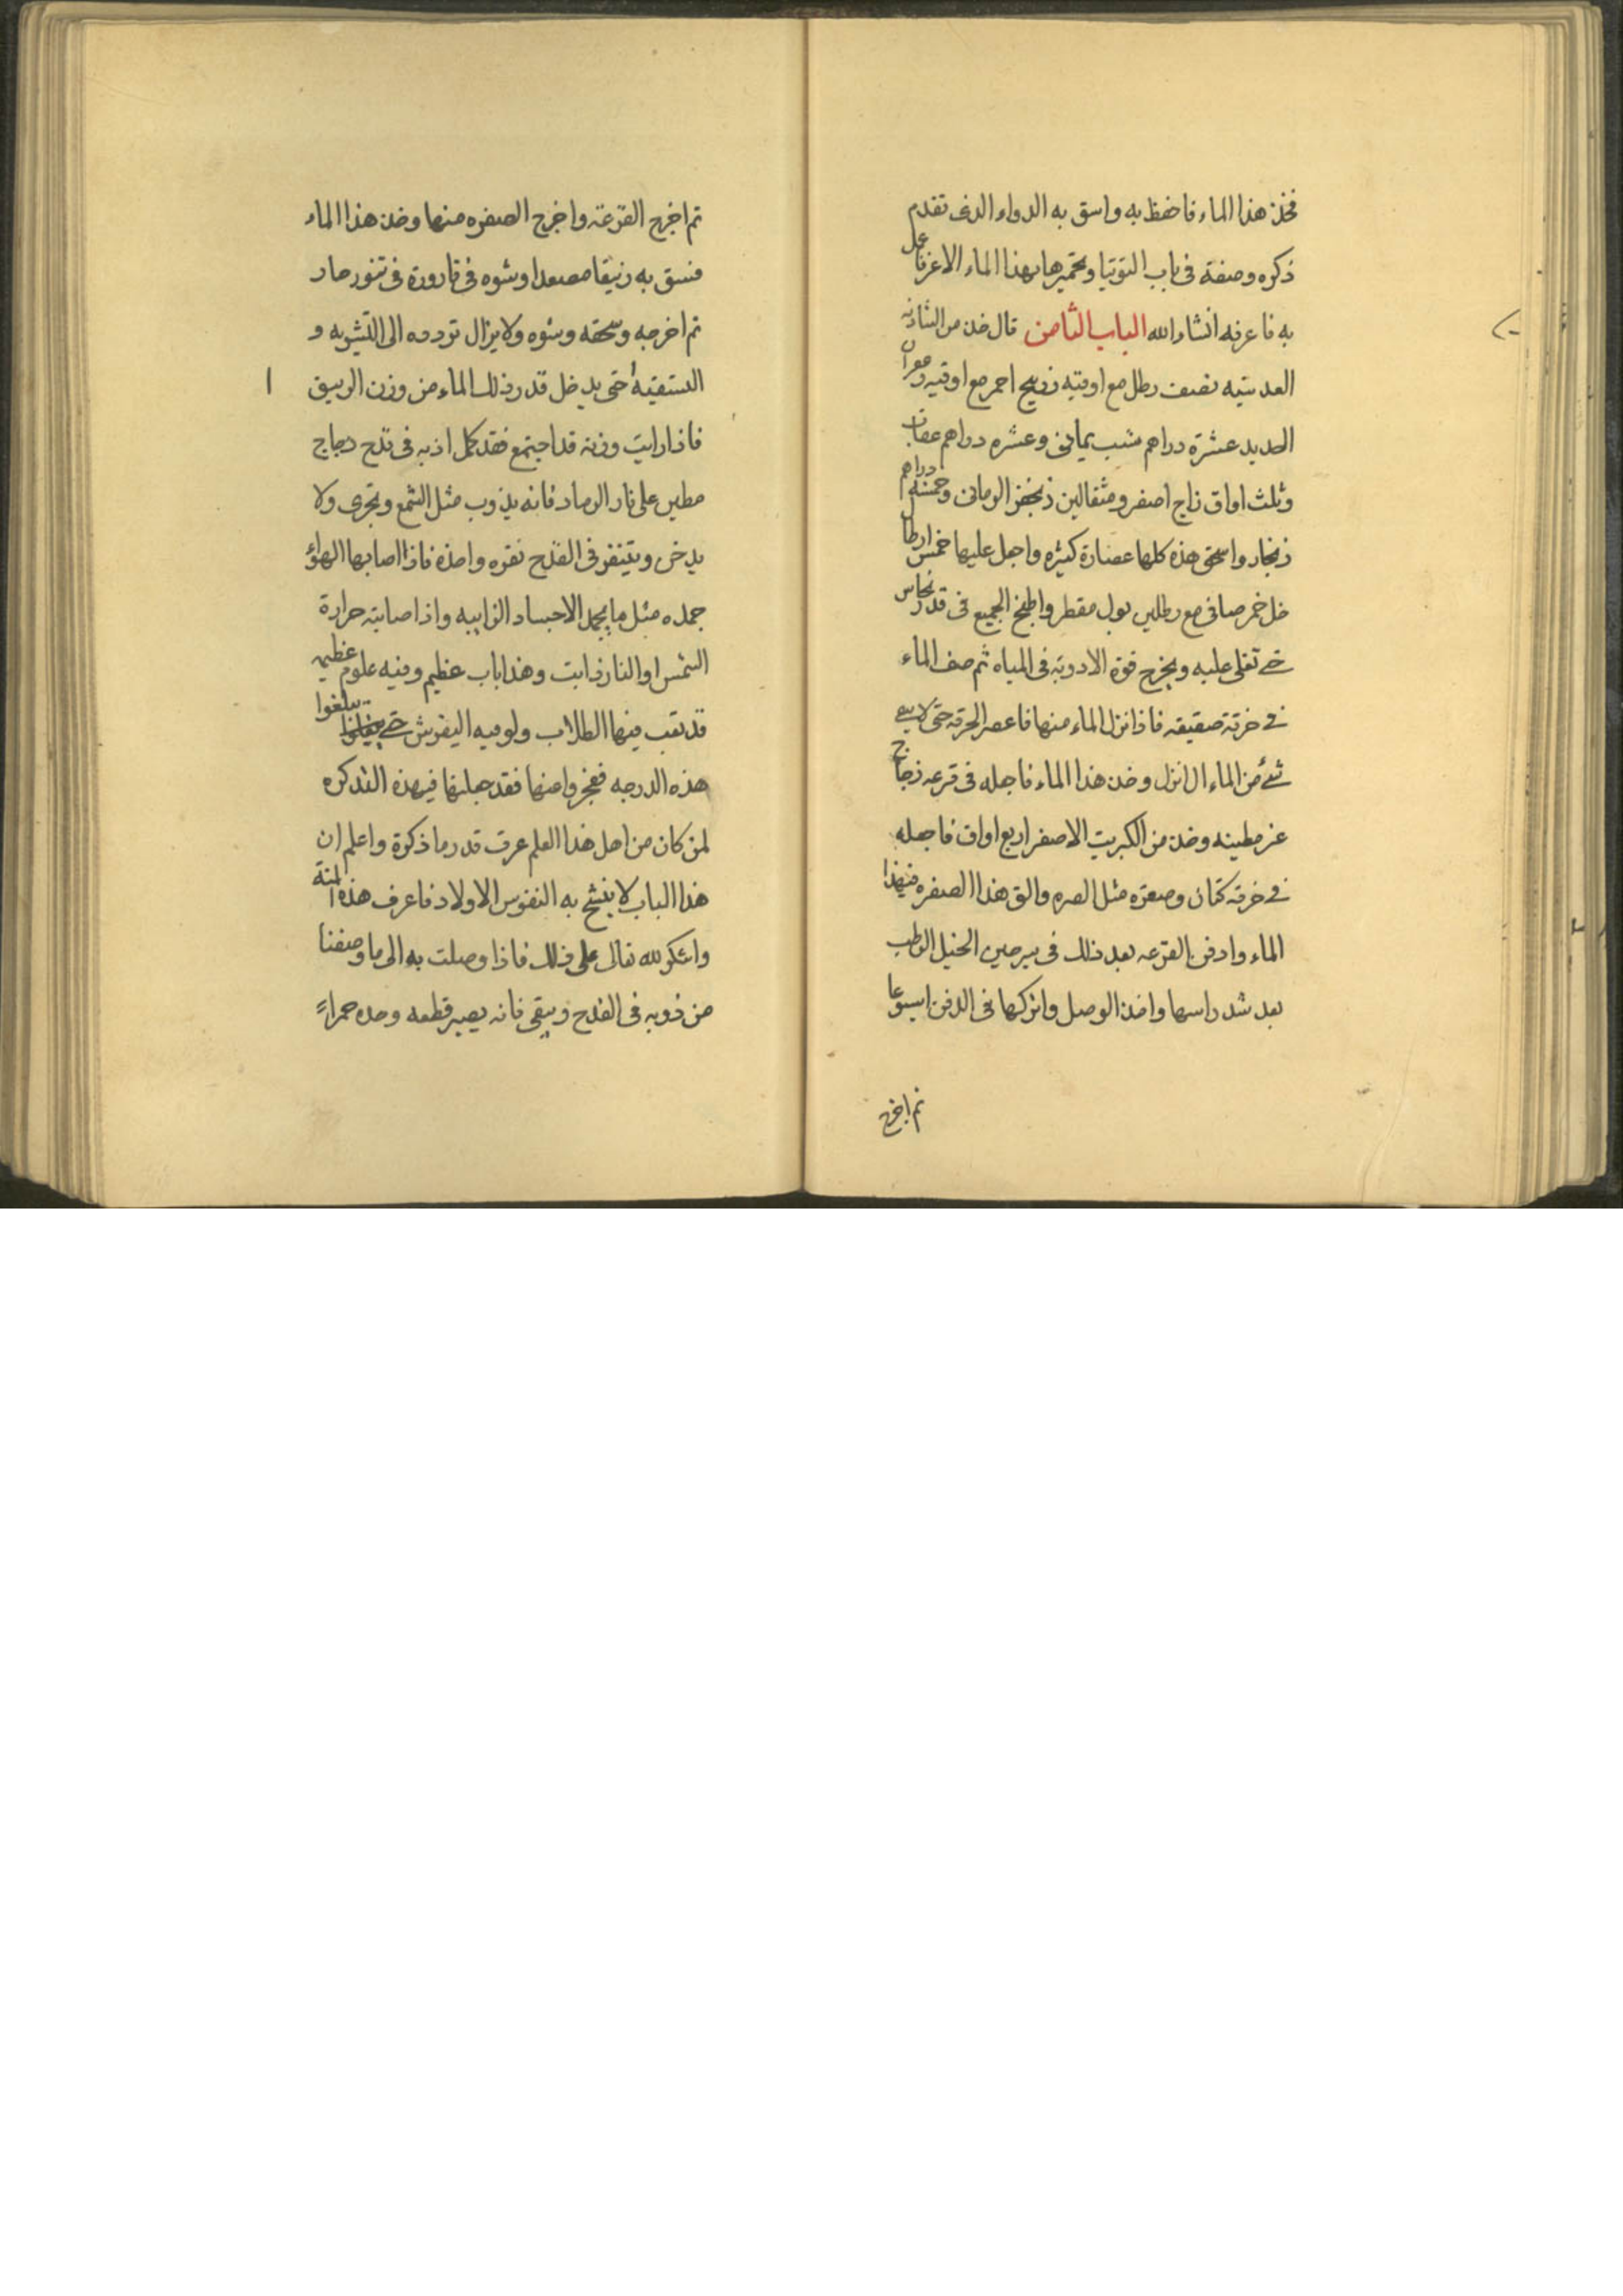 فخذ هذا الماء فاحفظ به واسق به الدواء الذى تقدم
ذكره وصفة فى باب التوتيا وتحميرها بهذا الماء الاغر فاعمل
به فاعرفه انشاء الله الباب الثامن قال خذ من الشاذنه
العدسيه نصف رطل مع اوقيه زرنيخ احمر مع اوقيه زعفران
الحديد عشرة دراهم شب يمانى وعشره دراهم عقاب
وثلث اواق زاج اصفر ومثقالين زنجفر الرمانى وخمسة دراهم
زنجار واسحق هذه كلها عصارة كثيره واجعل عليها خمس ارطال
خل خمر صافى مع رطلين بول مقطر واطبخ الجميع فى قدر نحاس
حتى تغلى عليه ويخرج قوة الادوية فى المياه ثم صف الماء
فى خرقة صفيقه فاذا نزل الماء منها فاعصر الخرقه حتى لا يبقى
شئ من الماء الا نزل وخذ هذا الماء فاجعله فى قرعه زجاج
غر مطينه وخذ من الكبريت الاصفر اربع اواق فاجعله
فى خرقة كتان وصيره مثل الصره والق هذا الصفره فيهذا
الماء وادفن القرعه بعد ذلك فى سرجين الخيل الرطب
بعد شد راسها واخذ الوصل واتركها فى الدفن اسبوعا
ثم اخرج
ثم اخرج القرعة واخرج الصفره منها وخذ هذا الماء
فسق به زئبقا مصعدا وشوه فى قارورة فى تنور حار
ثم اخرجه وسحقه وشوه ولا يزال تردده الى التشويه و
التسقية حتى يدخل قدر ذلك الماء من وزن الزيبق
فاذا رايت وزنه قد اجتمع فقد كمل اذبه فى قدح دجاج
مطين على نار الرماد فانه يذوب مثل الشمع ويجرى ولا
يدخن ويتنقر فى القدح نقره واحدة فاذا اصابها الهواء
جمده مثل ما يجمد الاجساد الذايبه واذا صابته حرارة
الشمس او النار ذابت وهذا باب عظيم وفيه علوم عظيمه
قد تعب فيها الطلاب ولو فيه اليفرش حتى يبلغوا
هذه الدرجه فعجزوا منها فقد جعلتها فيهذه التذكره
لمن كان من اهل هذا العلم عرف قدر ما ذكرة واعلم ان
هذا الباب لا ينشح به النفوس الاولاد فاعرف هذه المنة
واشكر لله تعالى على ذلك فاذا وصلت به الى ما وصفنا
من ذوبه فى القدح ويبقى فانه يصير قطعه وحده حمراء